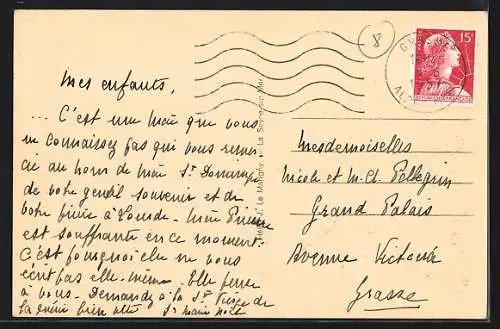 8
15F
Mes enfants,
... C'est une Mère que vous
ne connaissez pas qui vous remer-
cie au nom de Mère St Dominique
de votre gentil souvenir et de
votre prière à Lourdes - Mère Prieure
est souffrante en ce moment.
C'est pourquoi elle ne vous
écrit pas elle-même. Elle pense
à vous. Demandez à la Ste Vierge de
la guérir bien vite
Mesdemoiselles
Nicole et M. Cl. Pellegrin
Grand Palais
Avenue Victoria
Grasse